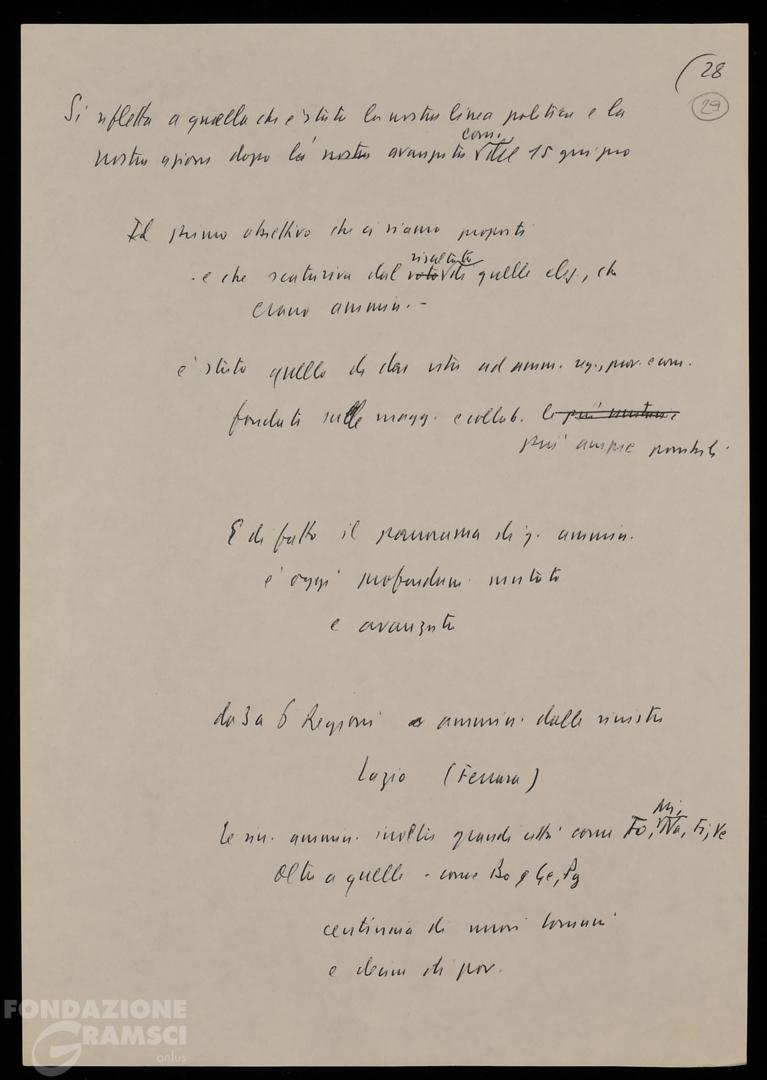 (28
29
Si rifletta a quella che è stata la nostra linea politica e la
nostra azione dopo la nostra avanzata com. del 15 giugno
Il primo obiettivo che ci siamo proposti
- e che scaturiva dal voto risultato di quelle elez., che
erano ammin. -
è stato quello di dar vita ad amm. reg., prov. e com.
fondate sulle magg. e collab. le più unitarie
più ampie possibili.
E di fatto il panorama di g. ammin.
è oggi profondam. mutato
e avanzato
da 3 a 6 Regioni ammin. dalle sinistre
Lazio (Ferrara)
Le sin. ammin. inoltre grandi città come To, Mi, Na, Fi, Ve
Oltre a quelle - come Bo e Ge, Pg
centinaia di nuovi Comuni
e decine di prov.
FONDAZIONE
GRAMSCI
onlus